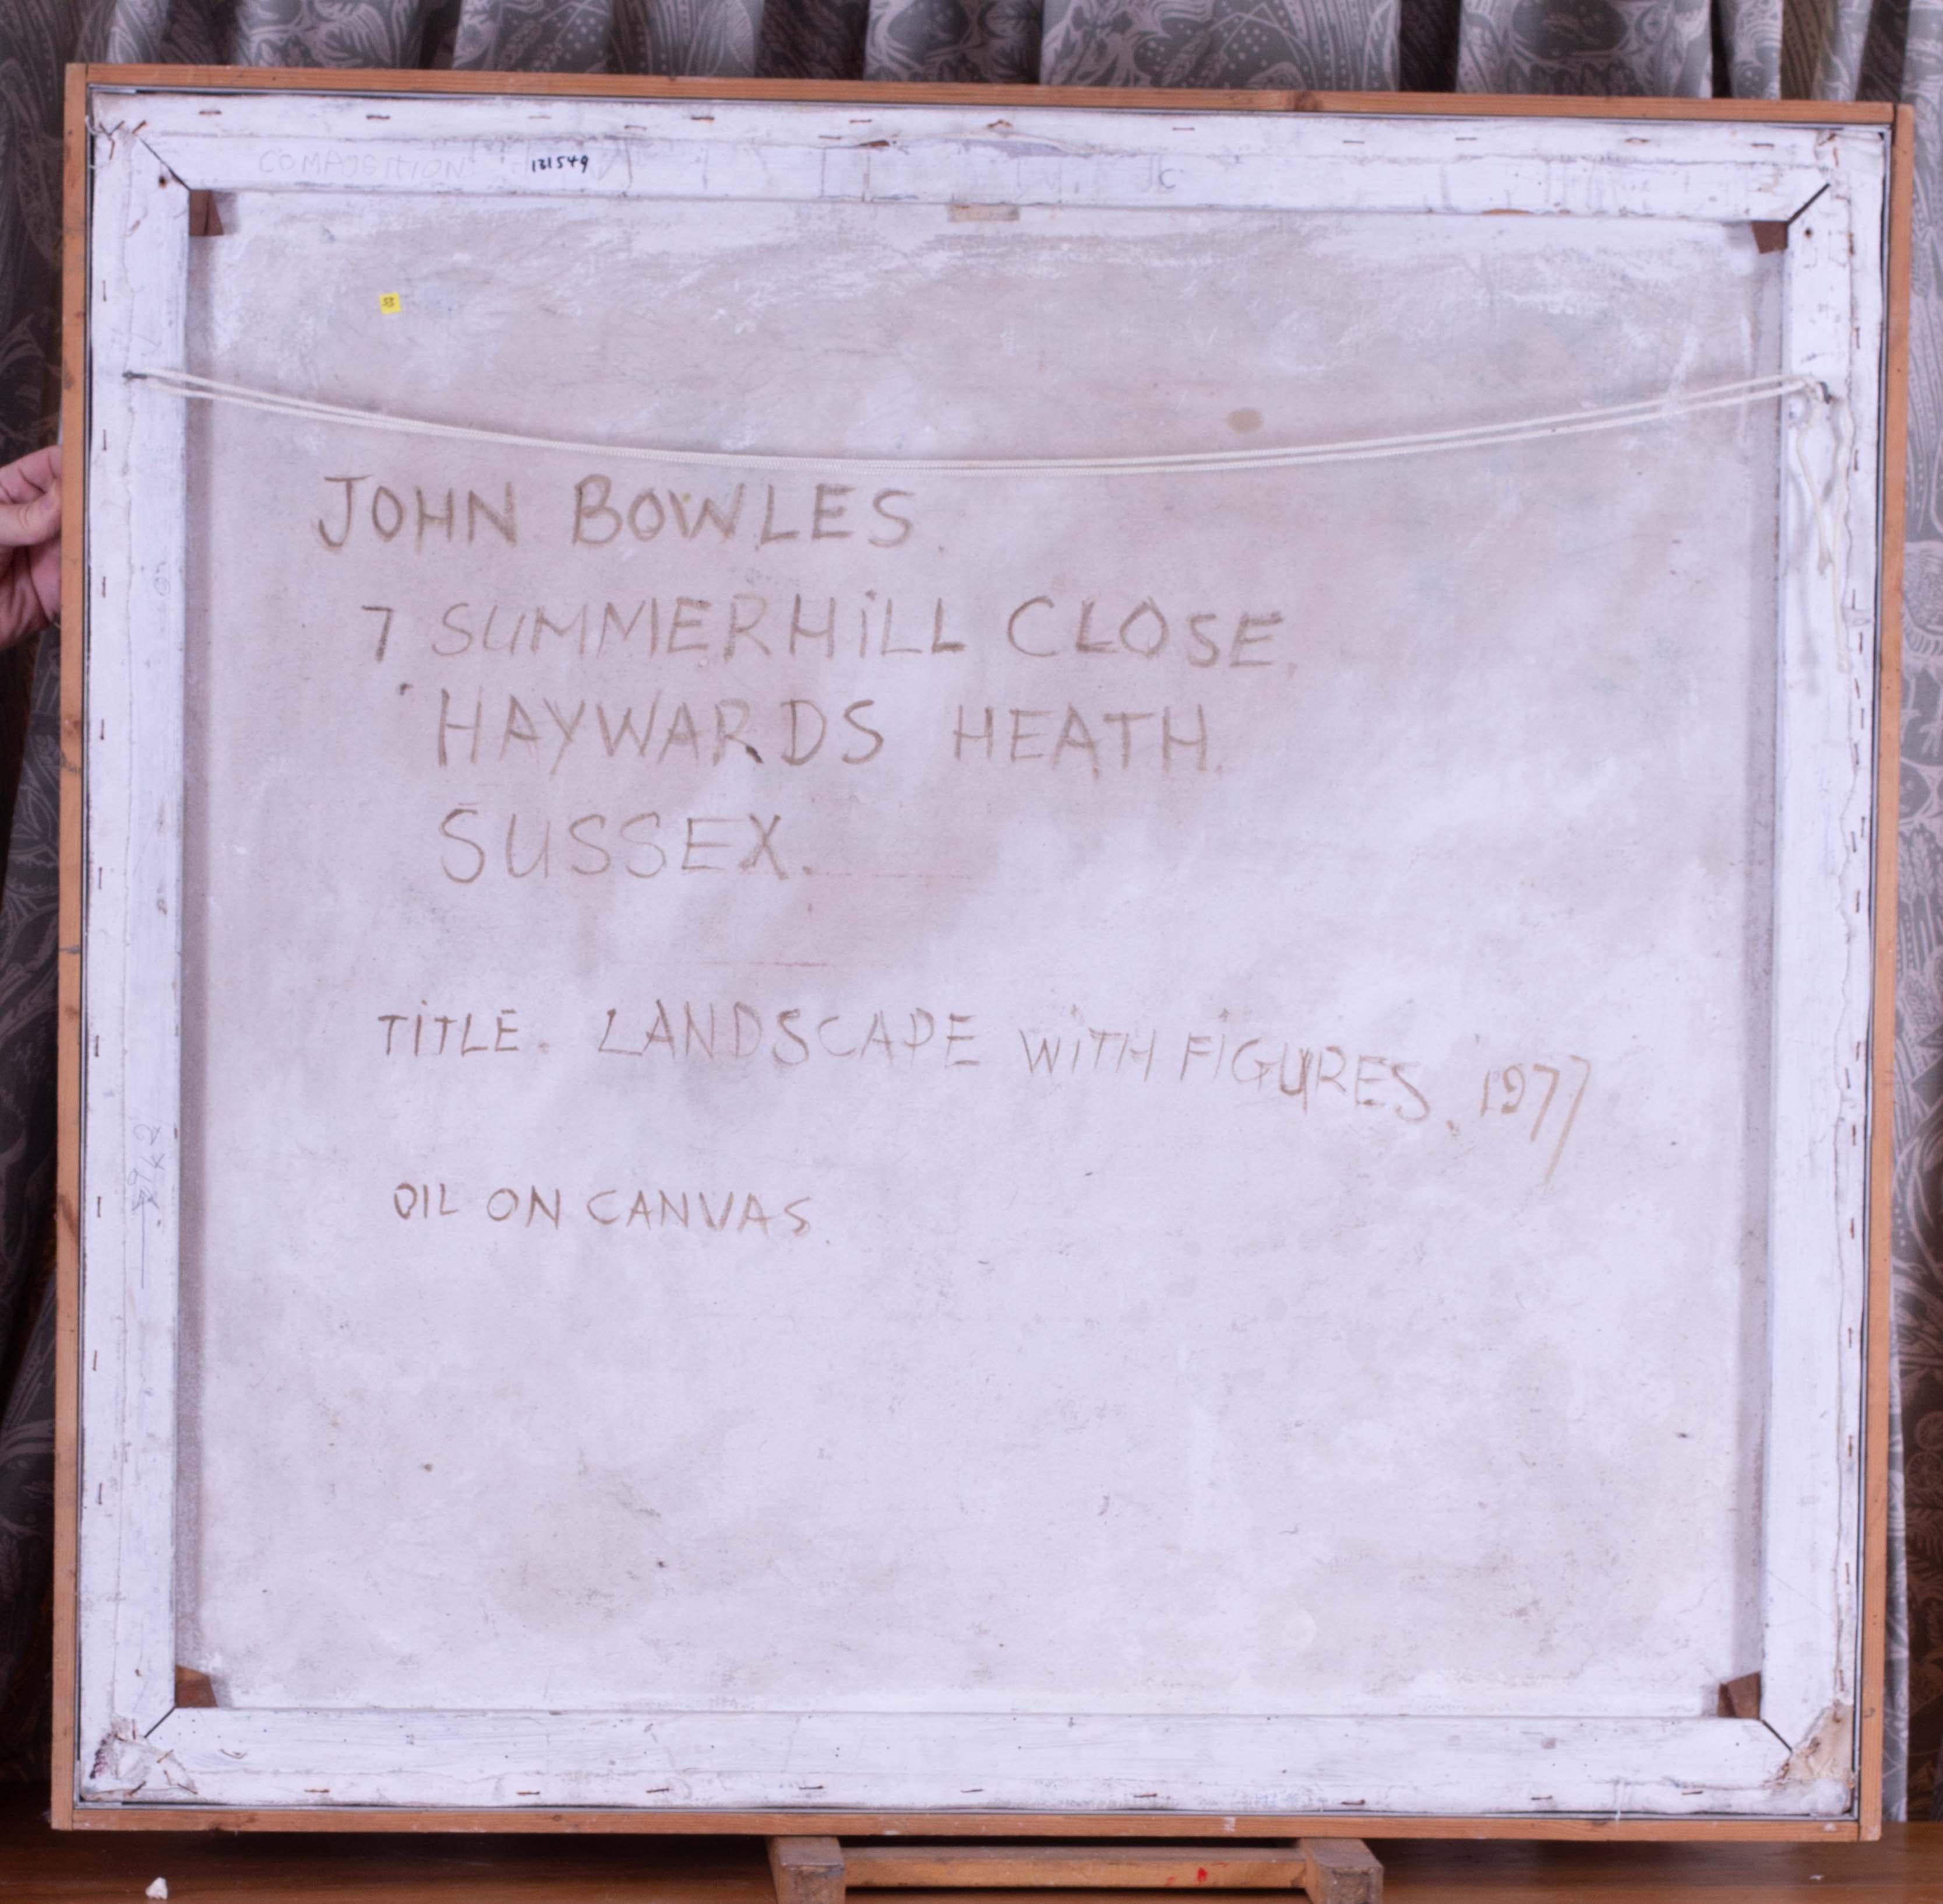 COMPOSITION 131549
C
53
JOHN BOWLES.
7 SUMMERHILL CLOSE.
HAYWARDS HEATH.
SUSSEX.
TITLE. LANDSCAPE WITH FIGURES. 1977
OIL ON CANVAS